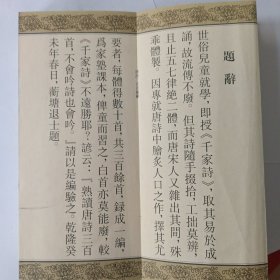 題辭
世俗兒童就學，即授《千家詩》，取其易於成
誦，故流傳不廢。但其詩隨手掇拾，工拙莫辨，
且止五七律絕二體，而唐宋人又雜出其間，殊
乖體製。因專就唐詩中膾炙人口之作，擇其尤
要者，每體得數十首，共三百餘首，録成一編，
爲家塾課本，俾童而習之，白首亦莫能廢，較
《千家詩》不遠勝耶？諺云：『熟讀唐詩三百
首，不會吟詩也會吟。』請以是編驗之。乾隆癸
未年春日，蘅塘退士題。